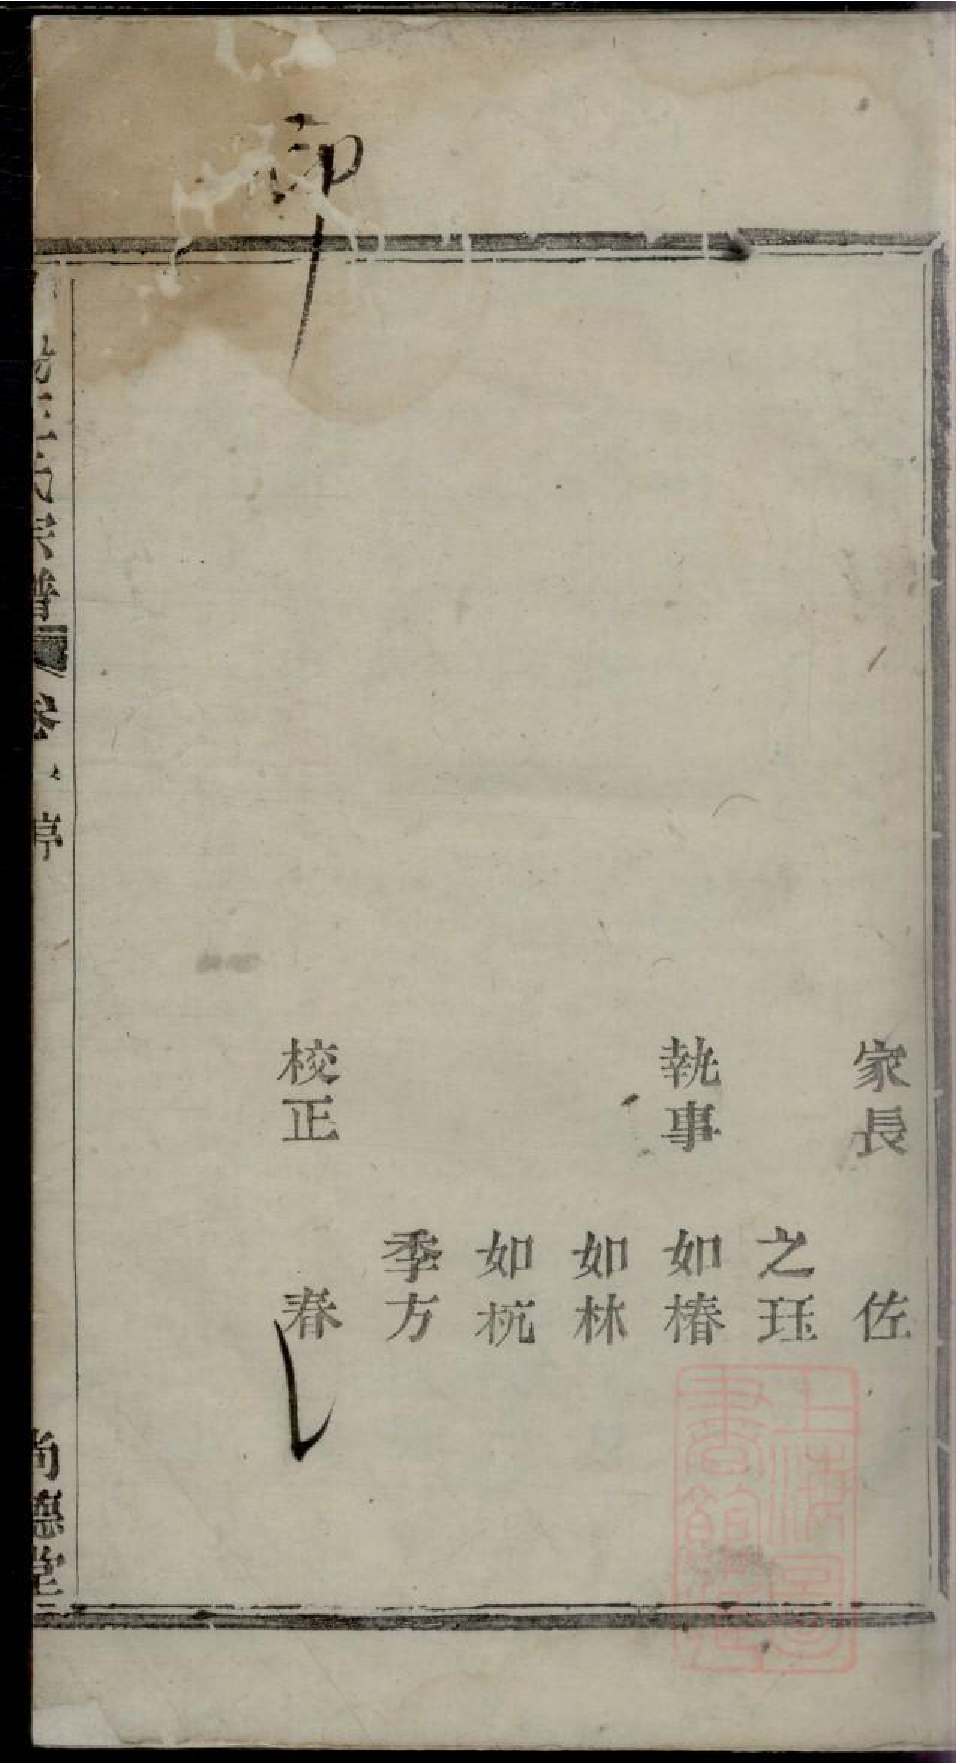 家長 佐
之珏
執事 如椿
如林
如杬
季方
校正 春
宗譜 卷 序
尚德堂
上海圖書館藏